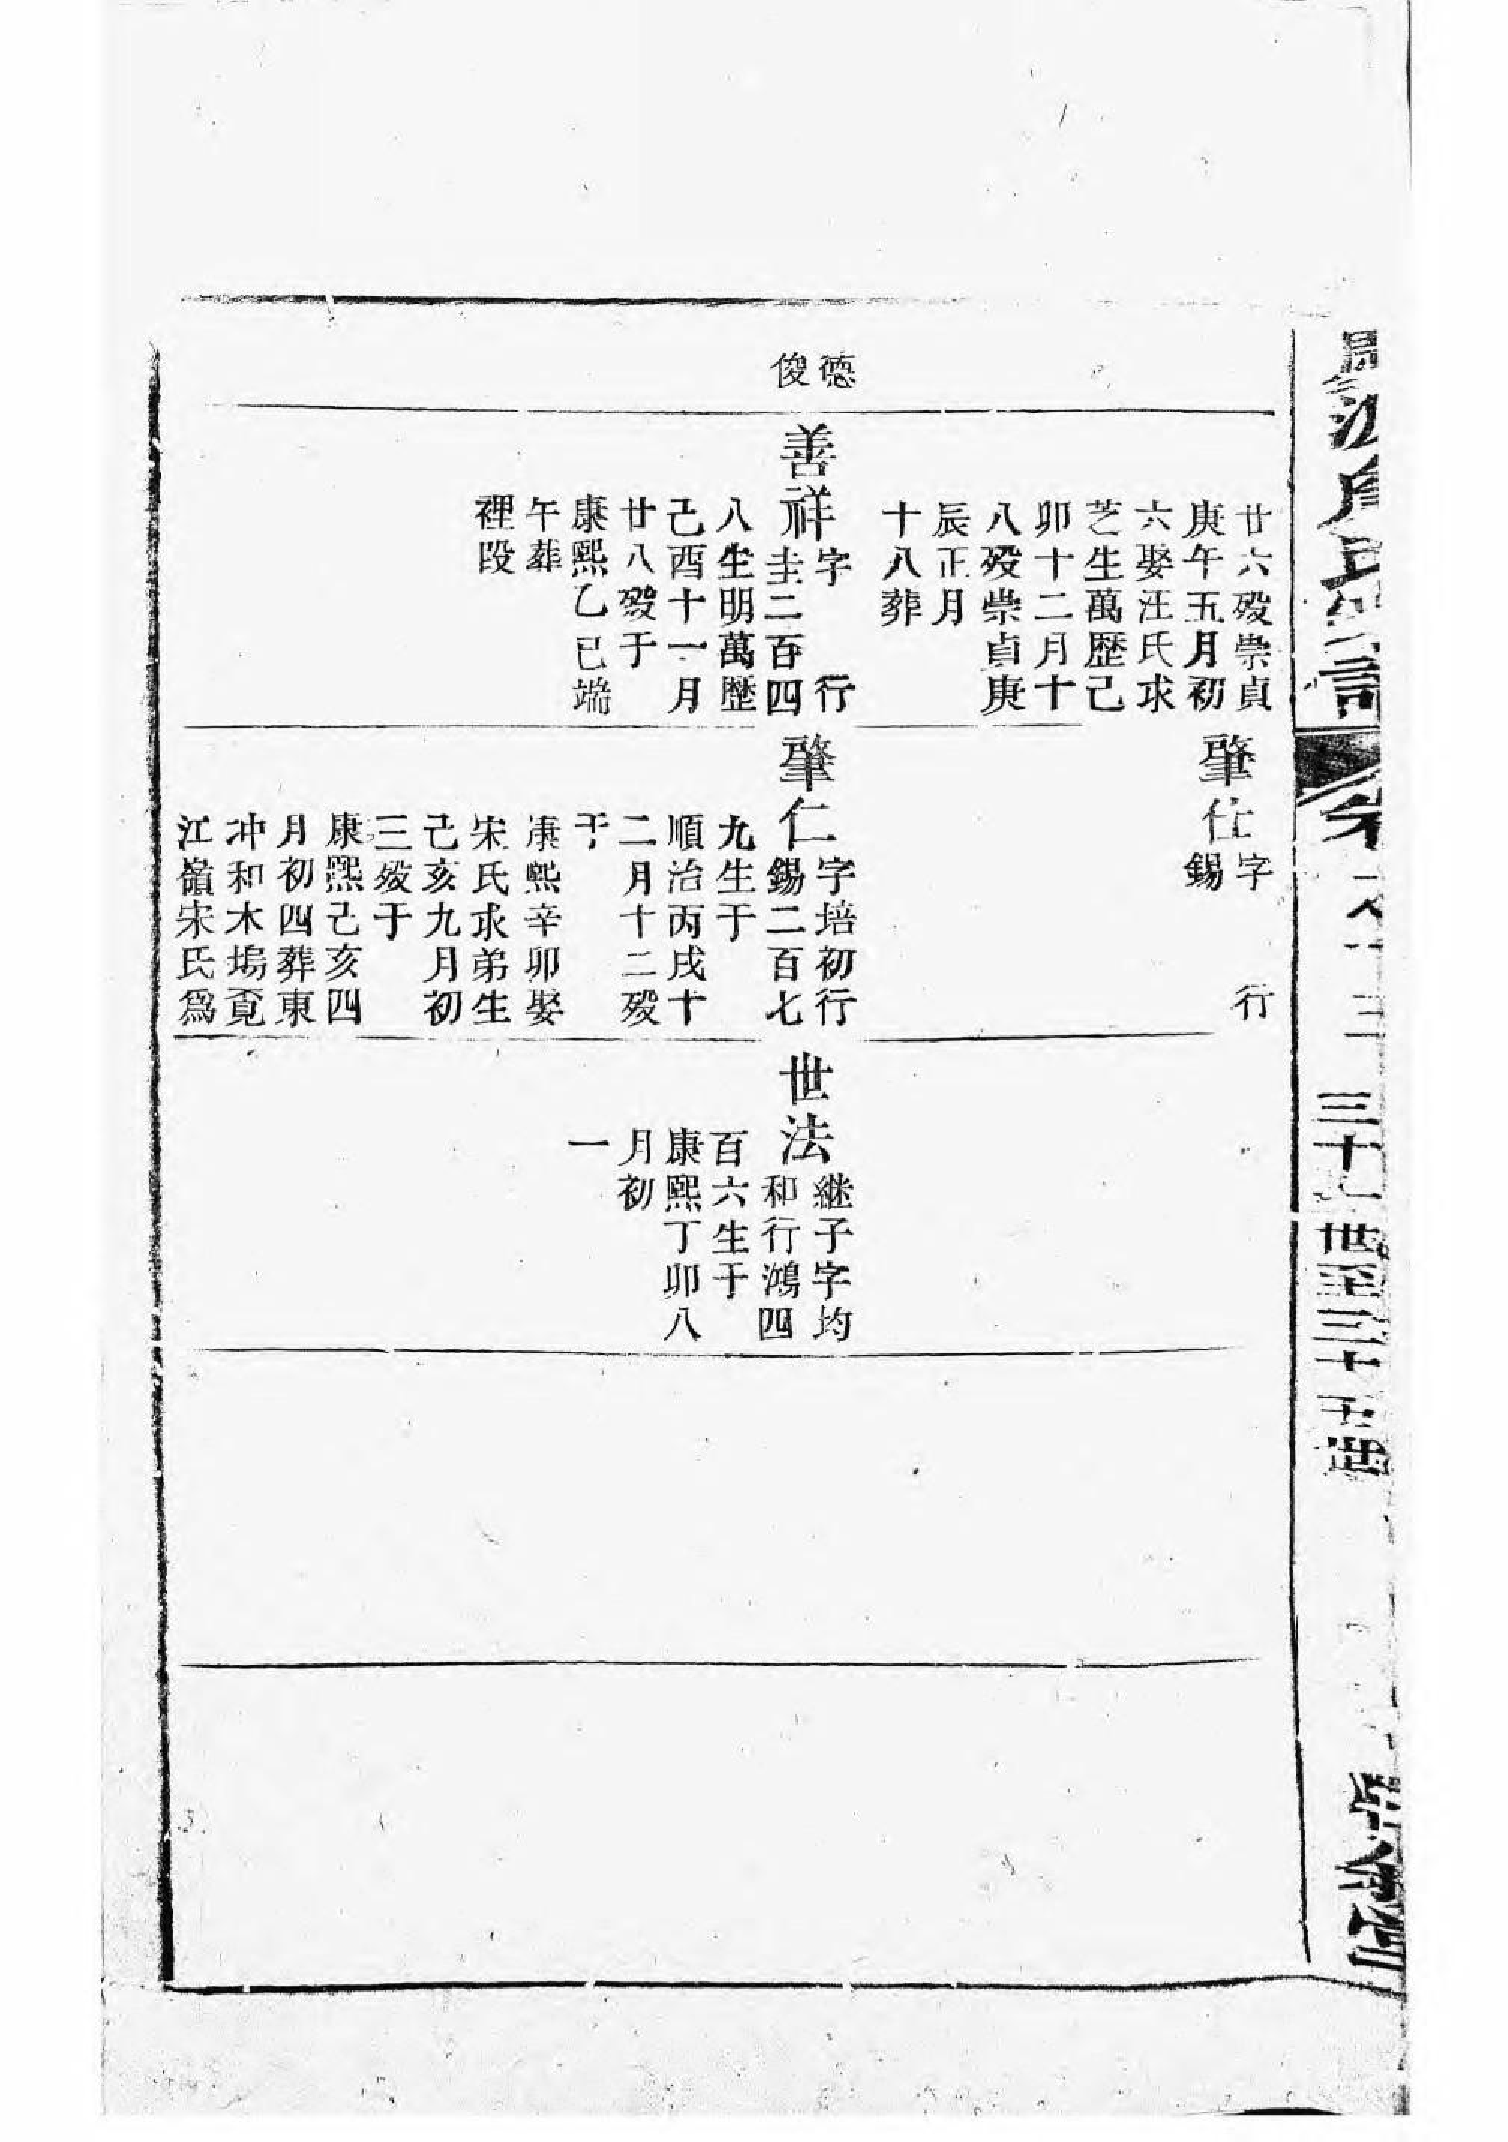 三十一世至三十五世
德
俊
廿六殁崇貞
庚午五月初
六娶汪氏求
芝生萬歷己
卯十二月十
八殁崇貞庚
辰正月
十八葬
善祥字　行
圭二百四
八生明萬歷
己酉十一月
廿八殁于
康熙乙巳端
午葬
裡段
肇仕字　行
錫
肇仁字培初行
錫二百七
九生于
順治丙戌十
二月十二殁
于
康熙辛卯娶
宋氏求弟生
己亥九月初
三殁于
康熙己亥四
月初四葬東
冲和木塢覔
江嶺宋氏爲
世法繼子字均
和行鴻四
百六生于
康熙丁卯八
月初
一